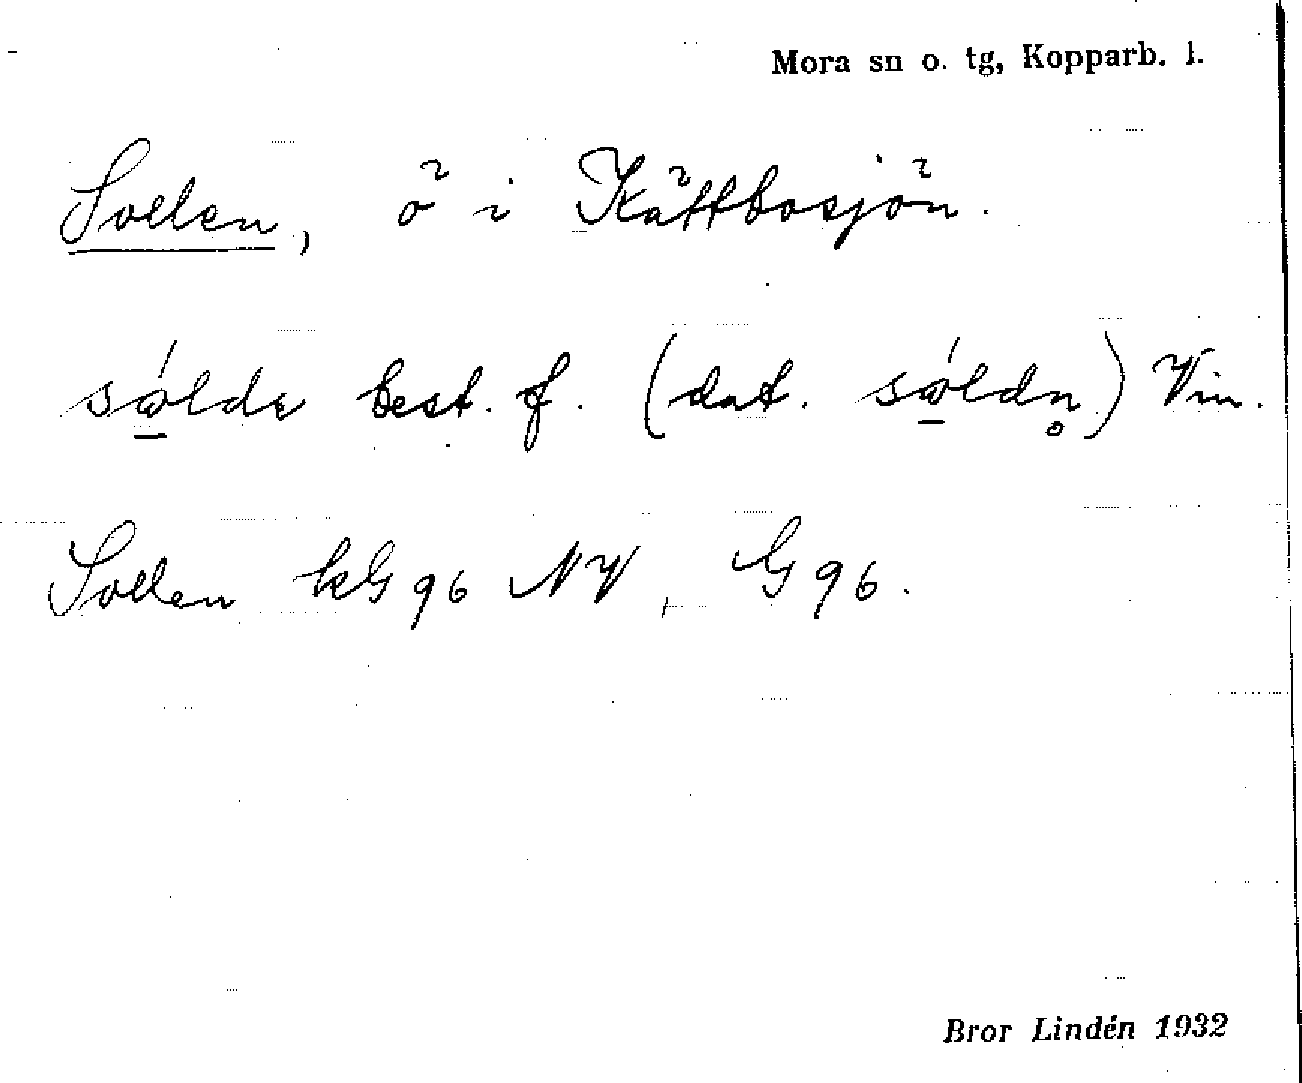 Mora sn o. tg, Kopparb. l.
Sollen, ö i Kättbosjön.
sólde best. f. (dat. sóldn̥) Vin.
Sollen kG96 NV, G96.
Bror Lindén 1932